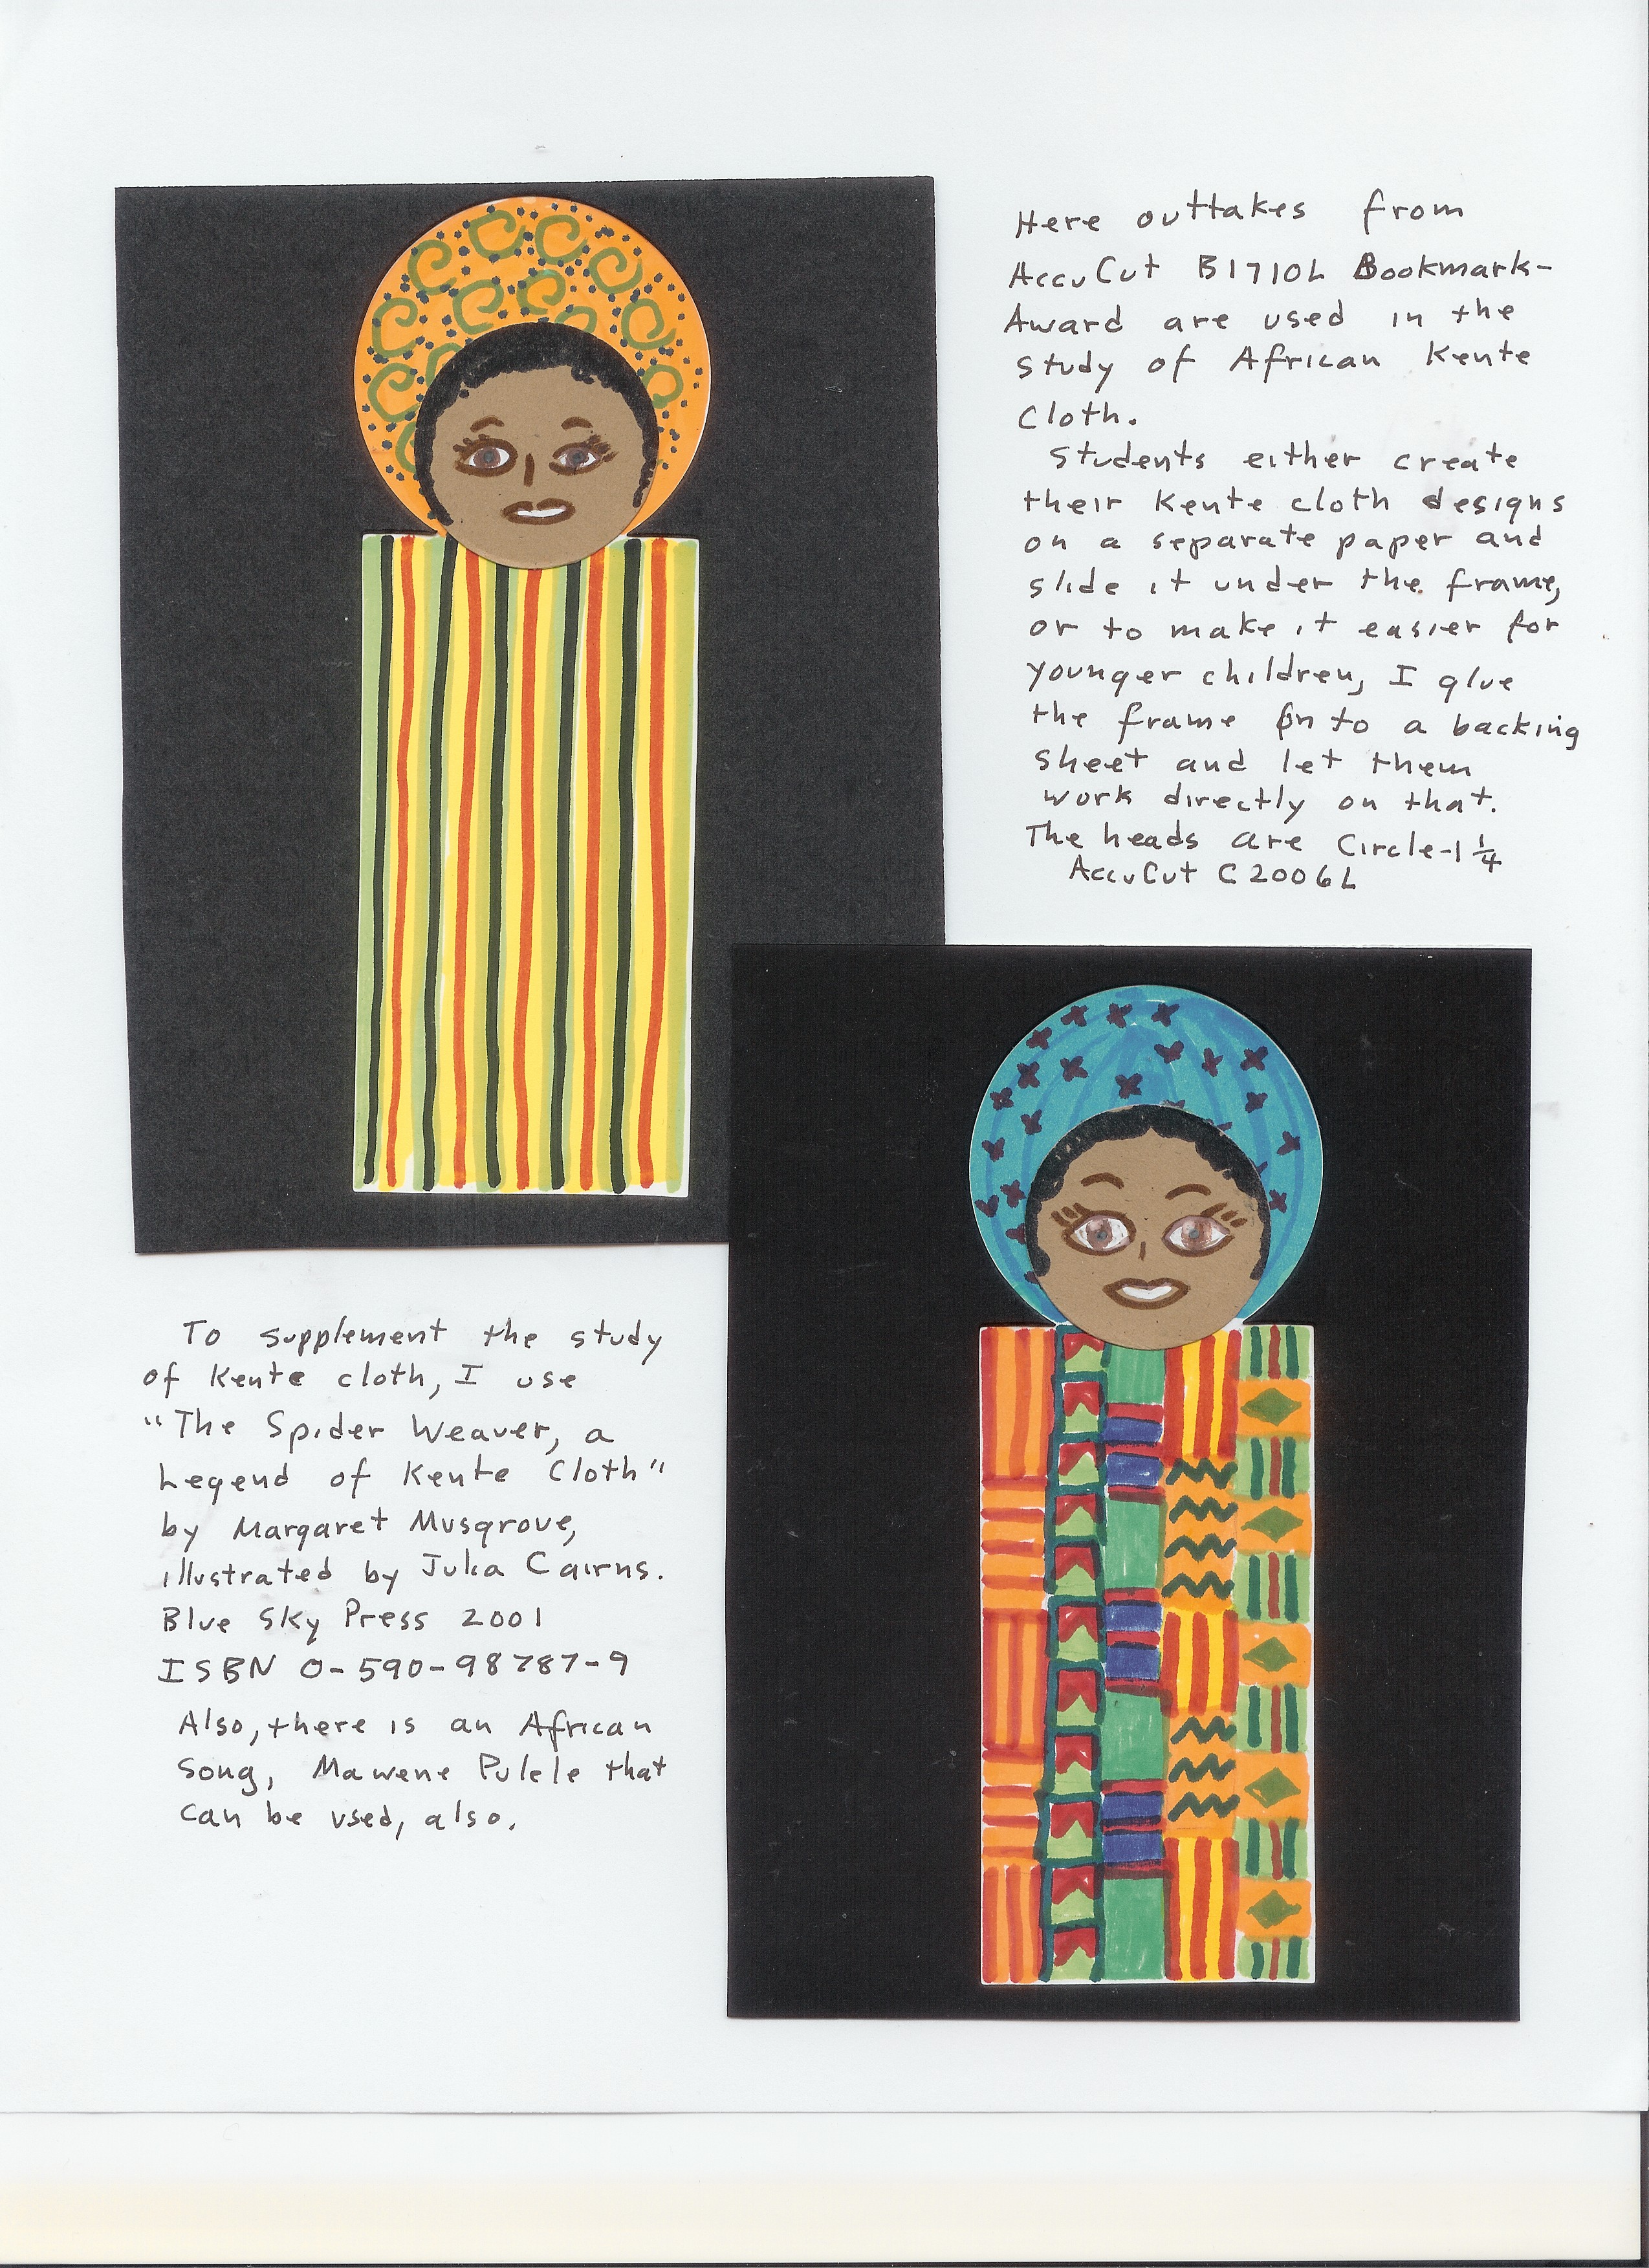 Here outtakes from
AccuCut B1710L Bookmark-
Award are used in the
study of African Kente
Cloth.
Students either create
their Kente cloth designs
on a separate paper and
slide it under the frame,
or to make it easier for
younger children, I glue
the frame onto a backing
sheet and let them
work directly on that.
The heads are Circle-1 1/4
AccuCut C2006L
To supplement the study
of Kente cloth, I use
"The Spider Weaver, a
Legend of Kente Cloth"
by Margaret Musgrove,
illustrated by Julia Cairns.
Blue Sky Press 2001
ISBN 0-590-98787-9
Also, there is an African
Song, Mawene Pulele that
can be used, also.